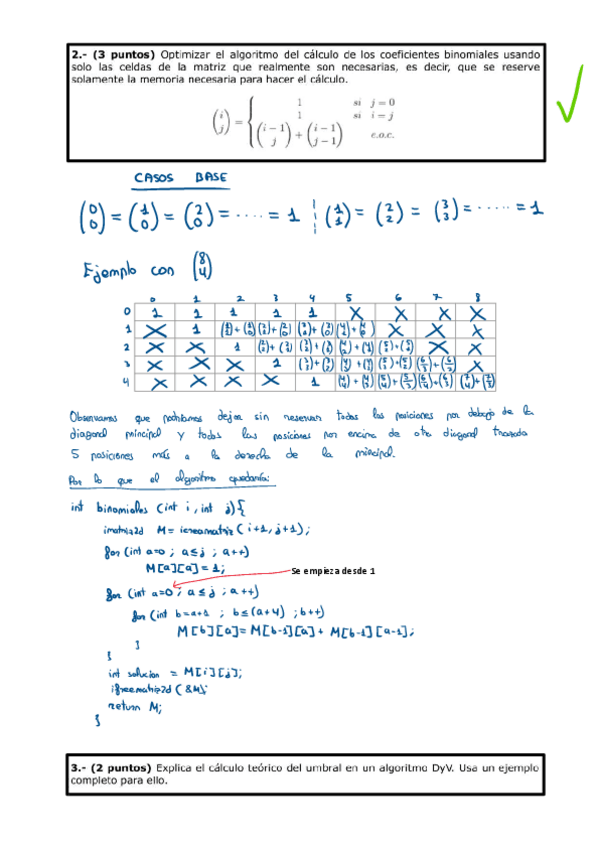 2.- (3 puntos) Optimizar el algoritmo del cálculo de los coeficientes binomiales usando
solo las celdas de la matriz que realmente son necesarias, es decir, que se reserve
solamente la memoria necesaria para hacer el cálculo.
(i j) = { 1 si j = 0
1 si i = j
(i−1 j) + (i−1 j−1) e.o.c.
CASOS BASE
(0 0) = (1 0) = (2 0) = ..... = 1 | (1 1) = (2 2) = (3 3) = ..... = 1
Ejemplo con (8 4)
0 1 2 3 4 5 6 7 8
0 1 1 1 1 1 X X X X
1 X 1
2 X X 1
3 X X X 1
4 X X X X 1
Observamos que podríamos dejar sin reservar todas las posiciones por debajo de la
diagonal principal y todas las posiciones por encima de otra diagonal trazada
5 posiciones más a la derecha de la principal.
Por lo que el algoritmo quedaría:
int binomiales (int i, int j){
imatriz2d M = icreamatriz (i+1, j+1);
for (int a=0 ; a≤j ; a++)
M[a][a] = 1;
Se empieza desde 1
for (int a=0 ; a≤j ; a++)
for (int b=a+1 ; b≤(a+4) ; b++)
M[b][a] = M[b-1][a] + M[b-1][a-1];
}
}
int solucion = M[i][j];
ifreematriz2d (&M);
return M;
}
3.- (2 puntos) Explica el cálculo teórico del umbral en un algoritmo DyV. Usa un ejemplo
completo para ello.